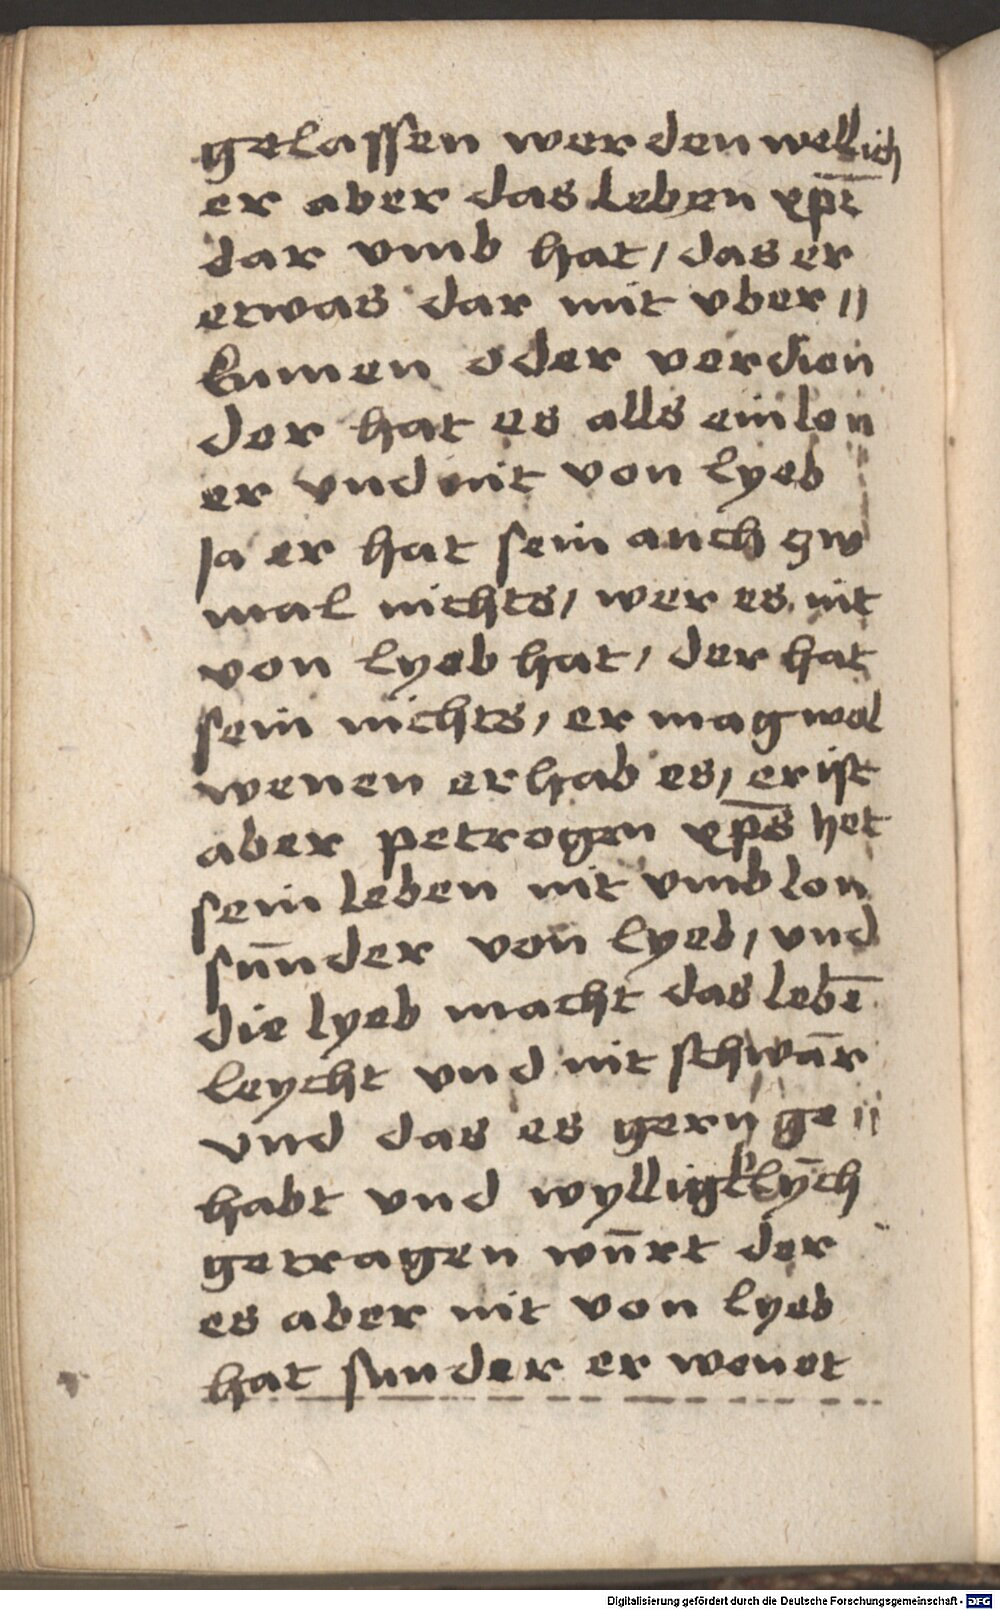 gelassen werden wellich
er aber das leben xp̄i
dar vmb hat / das er
etwas dar mit vber //
kumen oder verdien
der hat es alls ein lon
er vnd nit von lyeb
Ja er hat sein auch zw
mal nichts / wer es nit
von lyeb hat / der hat
sein nichts / er mag wol
wenen er hab es / er ist
aber petrogen xp̄s het
sein leben nit vmb lon
sūnder von lyeb / vnd
die lyeb macht das lebē
leycht vnd nit schwār
vnd das es gern ge //
habt vnd wylligklȳch
getragen wūrt der
es aber nit von lyeb
hat sunder er wenet
Digitalisierung gefördert durch die Deutsche Forschungsgemeinschaft - DFG